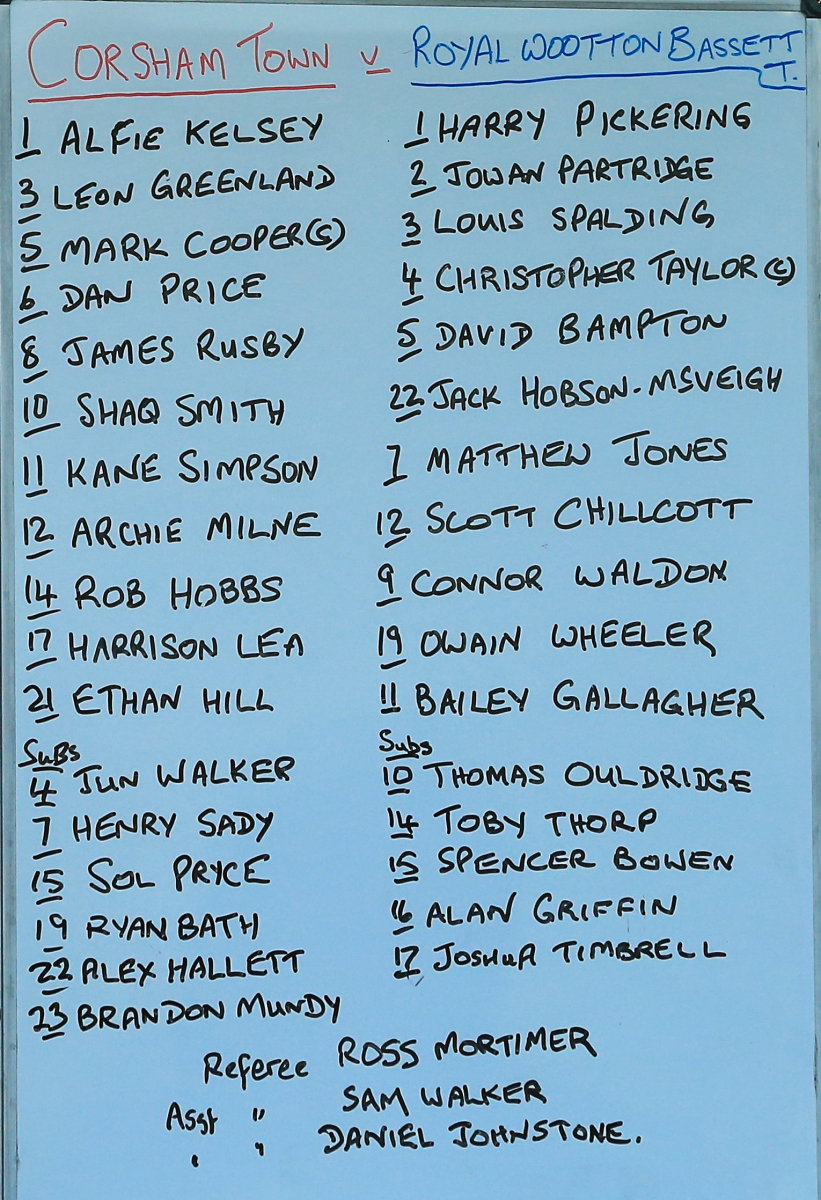 CORSHAM TOWN v ROYAL WOOTTON BASSETT T.
1 ALFIE KELSEY
3 LEON GREENLAND
5 MARK COOPER (C)
6 DAN PRICE
8 JAMES RUSBY
10 SHAQ SMITH
11 KANE SIMPSON
12 ARCHIE MILNE
14 ROB HOBBS
17 HARRISON LEA
21 ETHAN HILL
SUBS
4 JUN WALKER
7 HENRY SADY
15 SOL PRYCE
19 RYAN BATH
22 ALEX HALLETT
23 BRANDON MUNDY
1 HARRY PICKERING
2 JOWAN PARTRIDGE
3 LOUIS SPALDING
4 CHRISTOPHER TAYLOR (C)
5 DAVID BAMPTON
22 JACK HOBSON-MSVEIGH
7 MATTHEW JONES
12 SCOTT CHILLCOTT
9 CONNOR WALDON
19 OWAIN WHEELER
11 BAILEY GALLAGHER
Subs
10 THOMAS OULDRIDGE
14 TOBY THORP
15 SPENCER BOWEN
16 ALAN GRIFFIN
17 JOSHUA TIMBRELL
Referee ROSS MORTIMER
Asst " SAM WALKER
" " DANIEL JOHNSTONE.